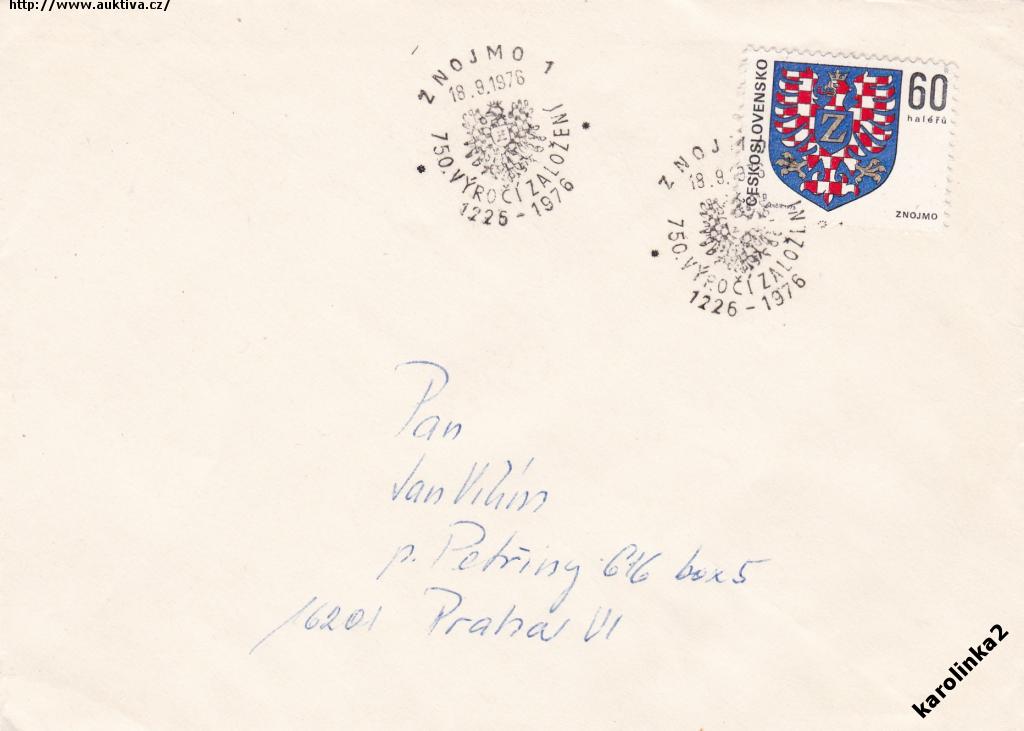 http://www.auktiva.cz/
ZNOJMO 1
18.9.1976
750. VÝROČÍ ZALOŽENÍ
1226-1976
ČESKOSLOVENSKO
60
haléřů
ZNOJMO
ZNOJM
18.9.
750. VÝROČÍ ZALOŽENÍ
1226-1976
Pan
Jan
p. Petřiny 616 box 5
16201 Praha VI
karolinka2